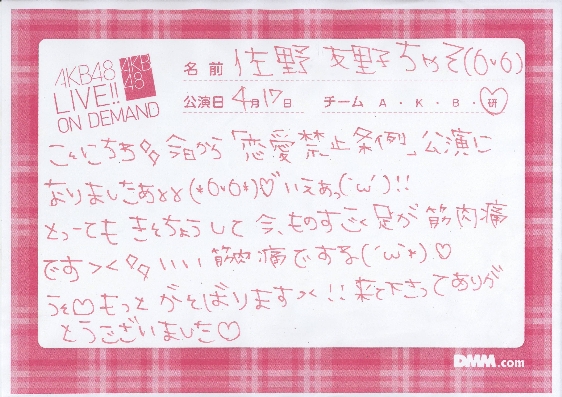 AKB48
LIVE!!
ON DEMAND
AKB
48
名前 佐野 友里子ちゃそ(6v6)
公演日 4月17日 チーム A・K・B・研
こんにちわ 今日から「恋愛禁止条例」公演に
なりましたあ (*6v6*)♡いえあっ(´ω`)!!
とっーても きんちょうして 今、ものすごく足が 筋肉痛
です いい 筋肉痛ですよ(´ω`*)♡
♡もっと がそばります !!来て下さってありが
とうございました♡
DMM.com